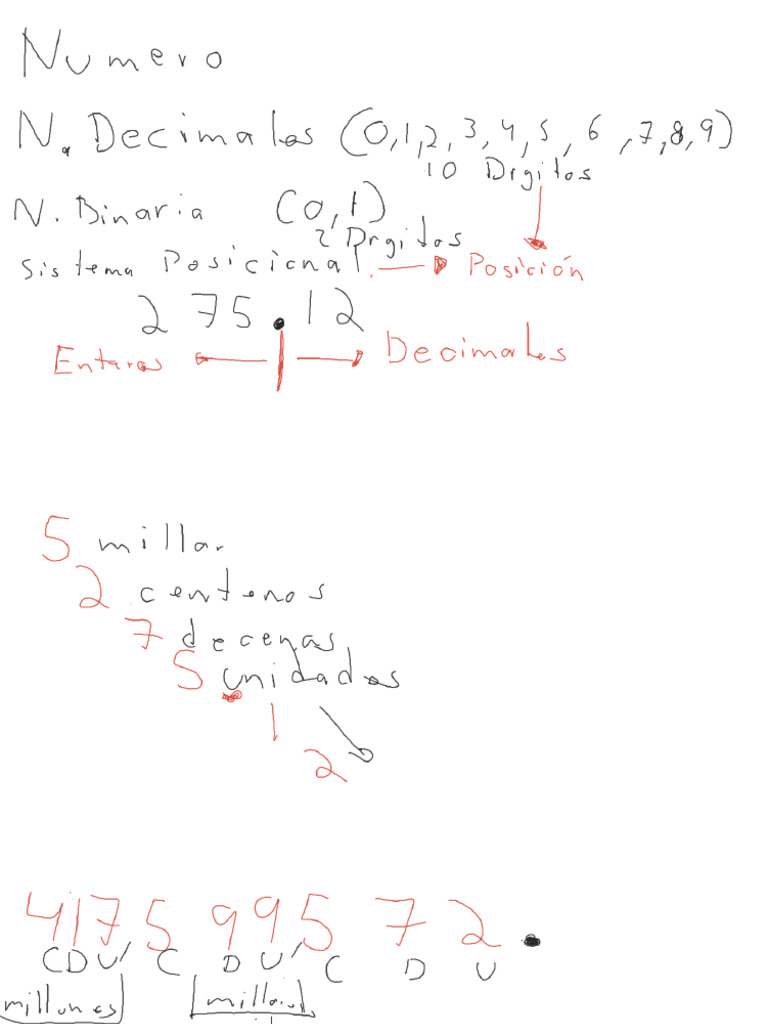 Numero
N. Decimales (0,1,2,3,4,5,6,7,8,9)
10 Digitos
N. Binaria (0,1)
2 Digitos
Sistema Posicional. Posición
275.12
Enteros Decimales
5 millar
2 centenas
7 decenas
5 unidades
2
417599572.
CDU' C D U' C D U
millones